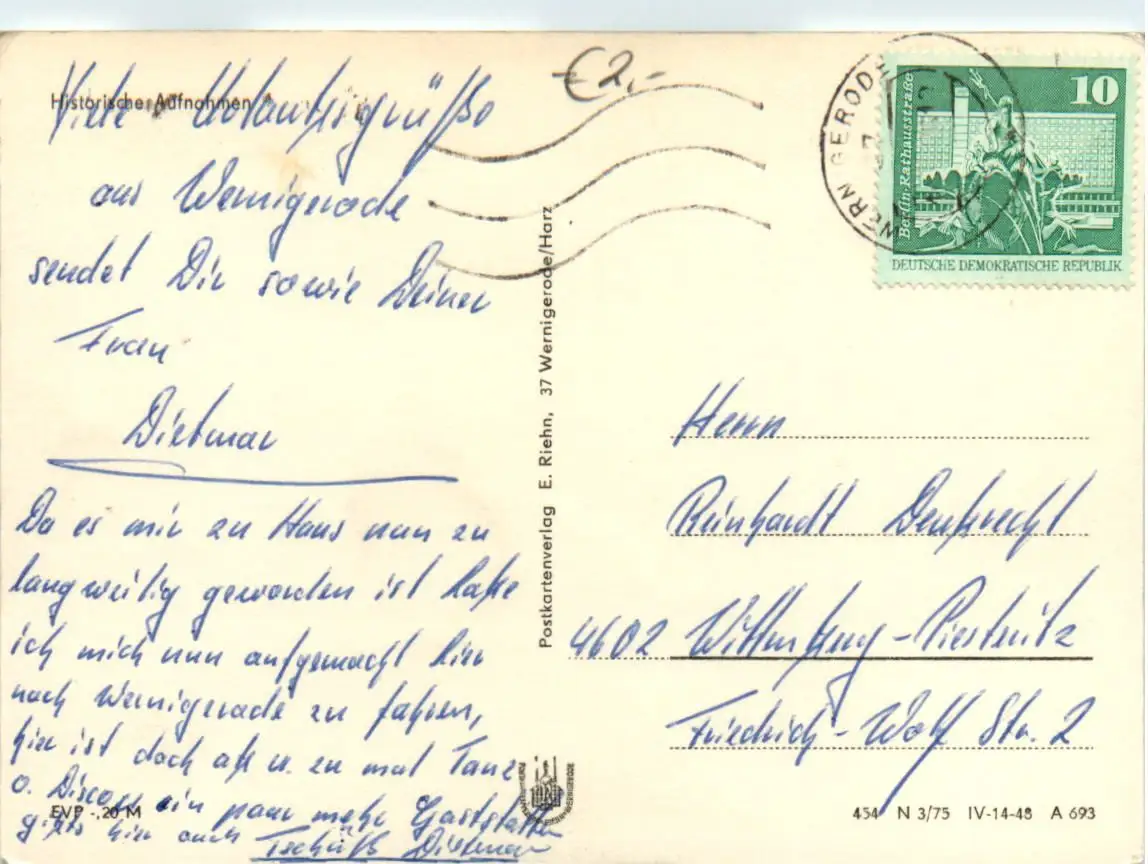 Historische Aufnahmen
€2,-
Viele Urlaubsgrüße
aus Wernigerode
sendet Dir sowie Deiner
Frau
Dietmar
Da es mir zu Haus nun zu
langweilig geworden ist habe
ich mich nun aufgemacht hier
nach Wernigerode zu fahren,
hier ist doch ab u. zu mal Tanz
o. Disco ein paar mehr Gaststätten
gibts hier auch Tschüß Dietmar
EVP -,20 M
Postkartenverlag E. Riehn, 37 Wernigerode/Harz
WERNIGERODE
10
Berlin-Rathausstraße
DEUTSCHE DEMOKRATISCHE REPUBLIK
Herrn
Reinhardt
4602 Wittenberg-Piesteritz
Friedrich-Wolf Str. 2
454 N 3/75 IV-14-48 A 693